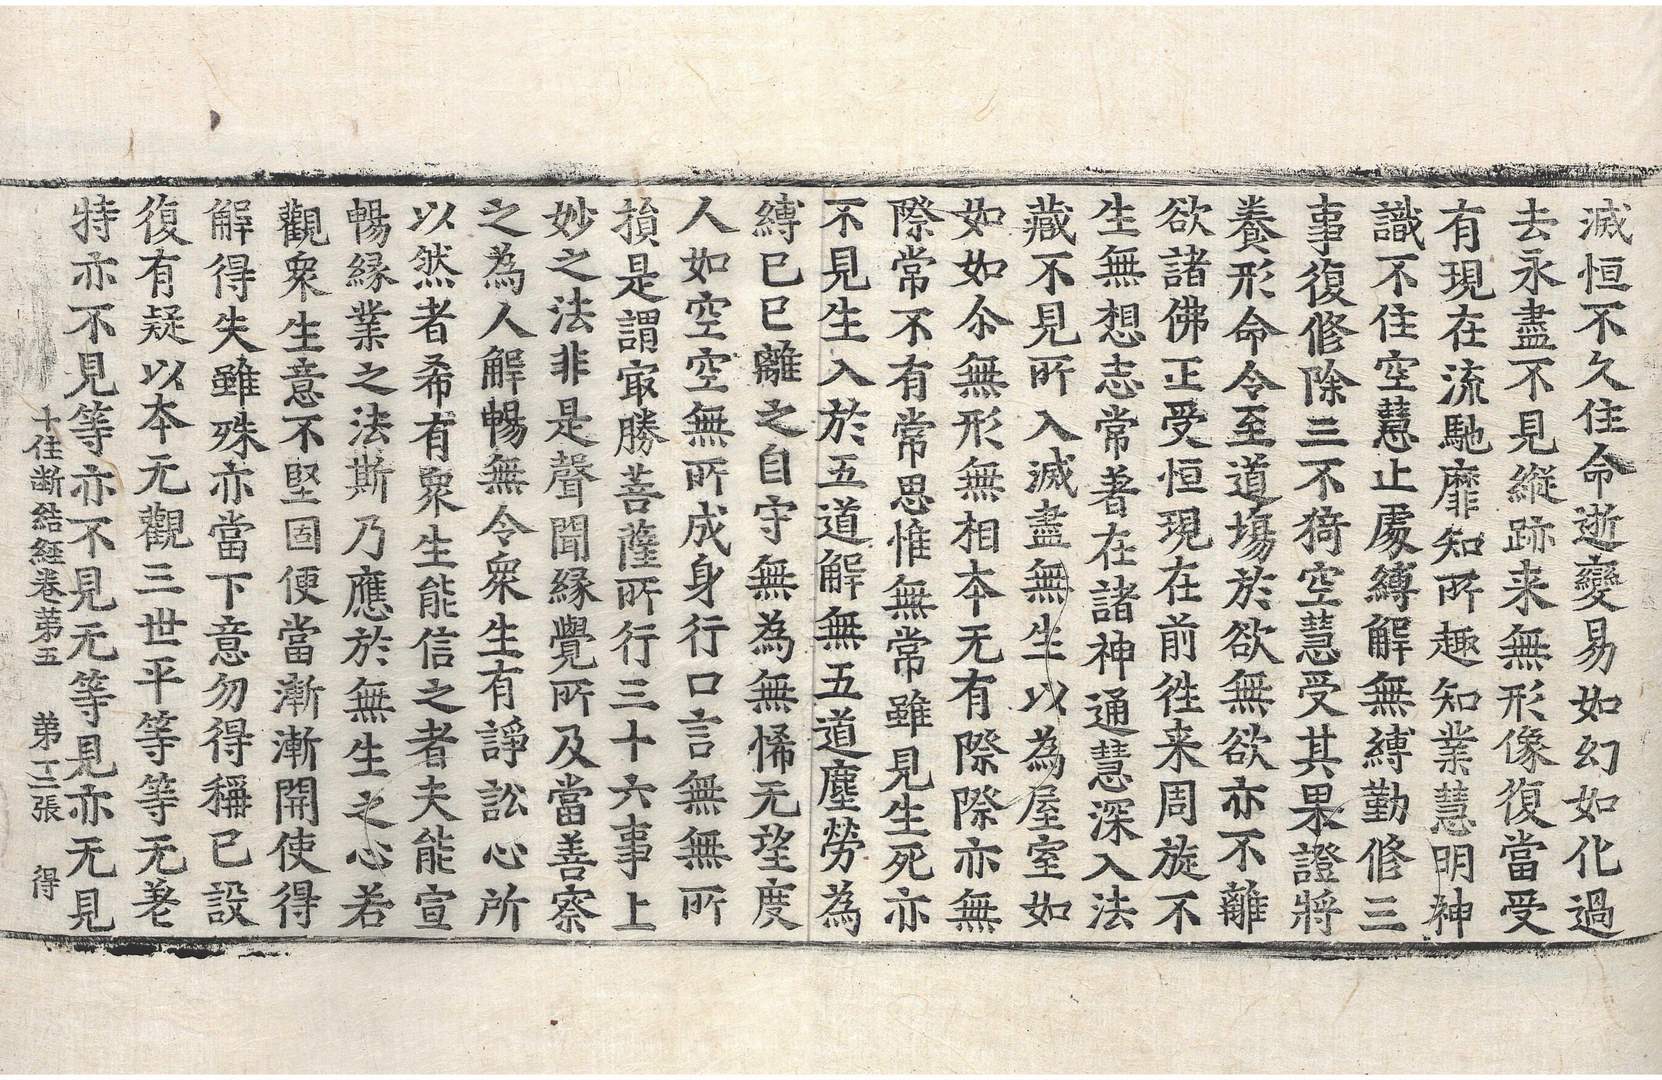 滅恒不久住命逝變易如幻如化過
去永盡不見縱跡来無形像復當受
有現在流馳靡知所趣知業慧明神
識不住空慧止處縛解無縛勤修三
事復修除三不猗空慧受其果證將
養形命令至道場於欲無欲亦不離
欲諸佛正受恒現在前徃来周旋不
生無想志常著在諸神通慧深入法
藏不見所入滅盡無生以為屋室如
如如尒無形無相本无有際際亦無
際常不有常思惟無常雖見生死亦
不見生入於五道解無五道塵勞為
縛已已離之自守無為無悕无望度
人如空空無所成身行口言無無所
損是謂冣勝菩薩所行三十六事上
妙之法非是聲聞緣覺所及當善察
之為人解暢無令衆生有諍訟心所
以然者希有衆生能信之者夫能宣
暢緣業之法斯乃應於無生之心若
觀衆生意不堅固便當漸漸開使得
解得失雖殊亦當下意勿得稱已設
復有疑以本无觀三世平等等无差
特亦不見等亦不見无等見亦无見
十住斷結經卷第五 第二張 得